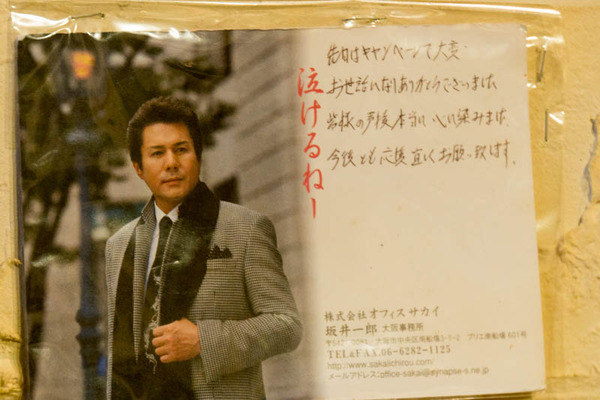 先日はキャンペーンで大変
お世話になりありがとうございました
皆様の声援本当に心に染みます。
今後とも応援宜しくお願い致します。
泣けるねー
株式会社オフィスサカイ
坂井一郎 大阪事務所
大阪市中央区南船場2-1-2 プリエ南船場601号
TEL&FAX.06-6282-1125
http://www.sakaiichirou.com/
メールアドレス:office-sakai@synapse-s.ne.jp